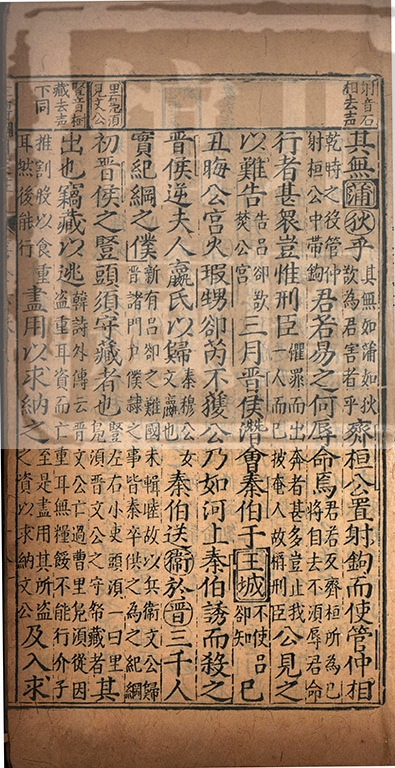 射音石
相去聲
其無蒲狄乎
其無如蒲如狄
欲為君害者乎
齊桓公置射鉤而使管仲相
乾時之役管仲
射桓公中帶鉤
君若易之何辱命焉
君若反齊桓所為己
將自去不須辱君命
行者甚眾豈惟刑臣
懼罪而出奔者甚多豈止我
一人而已披奄人故稱刑臣
公見之
以難告
告呂郤欲
焚公宮
三月晉侯濳會秦伯于王城
不使呂
郤知
己
丑晦公宮火瑕甥郤芮不獲公乃如河上秦伯誘而殺之
晉侯逆夫人嬴氏以歸
秦穆公女
文嬴也
秦伯送衛於晉三千人
實紀綱之僕
新有呂郤之難國未輯睦故以兵衛文公歸
晉諸門户僕隸之事皆秦卒供之為之紀綱
里鳧須
見文公
初晉侯之豎頭須守藏者也
豎左右小吏頭須一曰里
鳧須晉文公之守幣藏者
其
豎音樹
藏去聲
下同
出也竊藏以逃
韓詩外傳云晉文公亡過曹里鳧須從因
盜重耳資而亡重耳無糧餒不能行介子
推割股以食重
耳然後能行
盡用以求納之
至是盡用其所盜
之資以求納文公
及入求